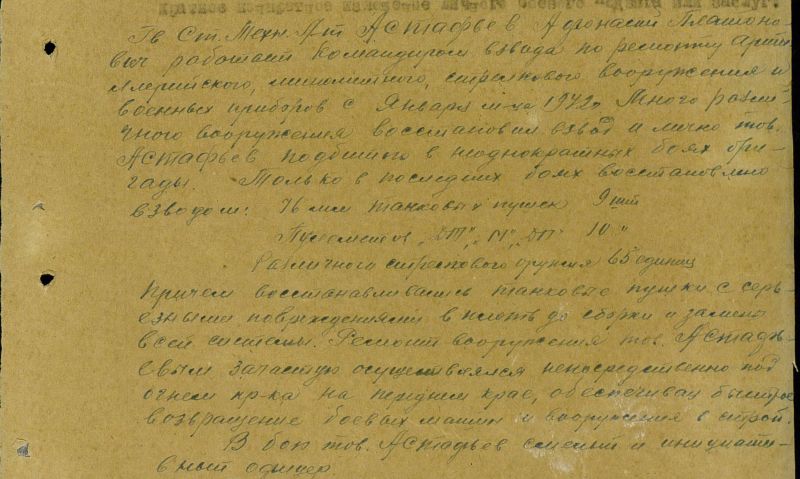 Краткое конкретное изложение личного боевого подвига или заслуг:
Гв Ст. Техн. Л-т Астафьев Афонасий Платоно-
вич работает командиром взвода по ремонту арти-
ллерийского, минометного, стрелкового вооружения и
военных приборов с Января м-ца 1942г. Много разли-
чного вооружения восстановил взвод и лично тов.
Астафьев подбитого в неоднократных боях бри-
гады. Только в последних боях восстановлено
взводом: 76 мм танковых пушек 9 шт
Пулеметов "ДТ", "М", "ДП" 10 "
Различного стрелкового оружия 65 единиц
Причем восстанавливались танковые пушки с серь-
езными повреждениями вплоть до сборки и замены
всей системы. Ремонт вооружения тов. Астафь-
евым зачастую осуществлялся непосредственно под
огнем пр-ка на переднем крае, обеспечивая быстрое
возвращение боевых машин и вооружения в строй.
В бою тов. Астафьев смелый и инициати-
вный офицер.